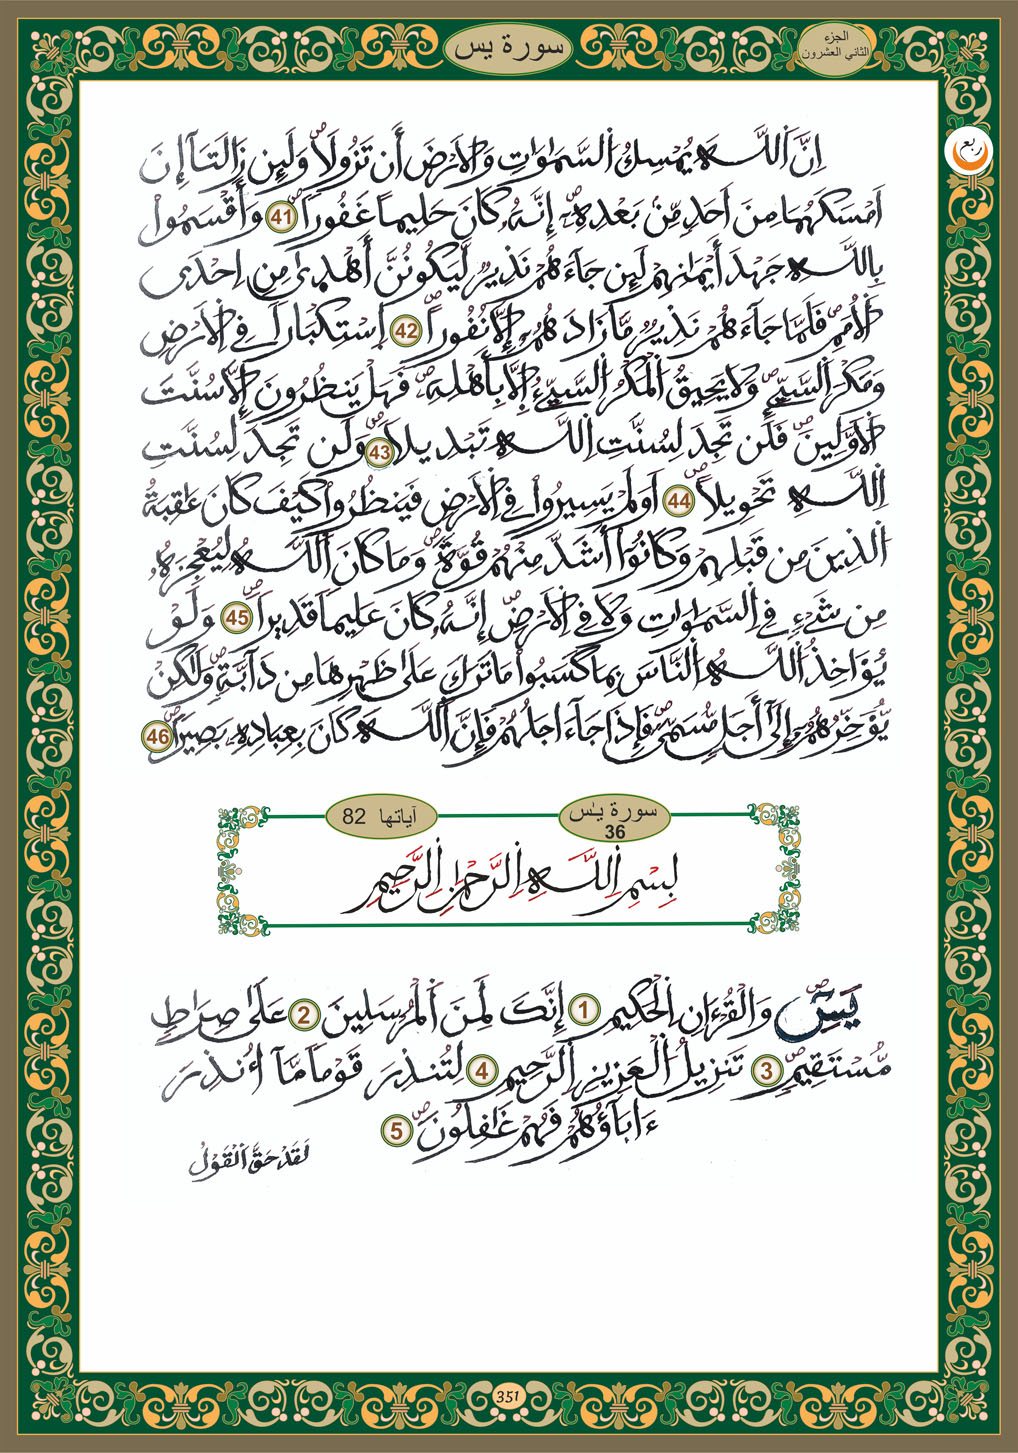 سورة يس
الجزء
الثاني العشرون
ربع
إِنَّ اَللَّهَ يُمْسِكُ اُلسَّمَٰوَٰتِ وَالَارْضَ أَن تَزُولَاۖ وَلَئِن زَالَتَآ إِنَ
اَمْسَكَهُمَا مِنَ اَحَدٖ مِّنۢ بَعْدِهِۦٓۖ إِنَّهُۥ كَانَ حَلِيماً غَفُوراٗۖ 41 وَأَقْسَمُواْ
بِاللَّهِ جَهْدَ أَيْمَٰنِهِمْ لَئِن جَآءَهُمْ نَذِيرٞ لَّيَكُونُنَّ أَهْدَىٰ مِنِ اِحْدَى
اَلُامَمِۖ فَلَمَّا جَآءَهُمْ نَذِيرٞ مَّا زَادَهُمُۥٓ إِلَّا نُفُوراًۖ 42 اِسْتِكْبَاراٗ فِي اِلَارْضِ
وَمَكْرَ اَلسَّيِّےِٕۖ وَلَا يَحِيقُ اُلْمَكْرُ اُلسَّيِّئُ إِلَّا بِأَهْلِهِۦۖ فَهَلْ يَنظُرُونَ إِلَّا سُنَّتَ
اَلَاوَّلِينَۖ فَلَن تَجِدَ لِسُنَّتِ اِللَّهِ تَبْدِيلاٗۖ 43 وَلَن تَجِدَ لِسُنَّتِ
اِللَّهِ تَحْوِيلاًۖ 44 اَوَلَمْ يَسِيرُواْ فِي اِلَارْضِ فَيَنظُرُواْ كَيْفَ كَانَ عَٰقِبَةُ
اُلذِينَ مِن قَبْلِهِمْ وَكَانُوٓاْ أَشَدَّ مِنْهُمْ قُوَّةٗۖ وَمَا كَانَ اَللَّهُ لِيُعْجِزَهُۥ
مِن شَےْءٖ فِي اِلسَّمَٰوَٰتِ وَلَا فِي اِلَارْضِۖ إِنَّهُۥ كَانَ عَلِيماٗ قَدِيراٗۖ 45 وَلَوْ
يُؤَاخِذُ اُللَّهُ اُلنَّاسَ بِمَا كَسَبُواْ مَا تَرَكَ عَلَىٰ ظَهْرِهَا مِن دَآبَّةٖۖ وَلَٰكِنْ
يُّؤَخِّرُهُمُۥٓ إِلَىٰٓ أَجَلٖ مُّسَمّىٗۖ فَإِذَا جَآءَ اجَلُهُمْ فَإِنَّ اَللَّهَ كَانَ بِعِبَادِهِۦ بَصِيراٗۖ 46
سورة يـٰس
36
آياتها 82
بِسْمِ اِللَّهِ اِلرَّحْمَٰنِ اِلرَّحِيمِ
يَسِٓۖ وَالْقُرْءَانِ اِلْحَكِيمِ 1 إِنَّكَ لَمِنَ اَلْمُرْسَلِينَ 2 عَلَىٰ صِرَٰطٖ
مُّسْتَقِيمٖۖ 3 تَنزِيلُ اُلْعَزِيزِ اِلرَّحِيمِ 4 لِتُنذِرَ قَوْماٗ مَّآ أُنذِرَ
ءَابَآؤُهُمْ فَهُمْ غَٰفِلُونَۖ 5
لَقَدْ حَقَّ اَلْقَوْلُ
351